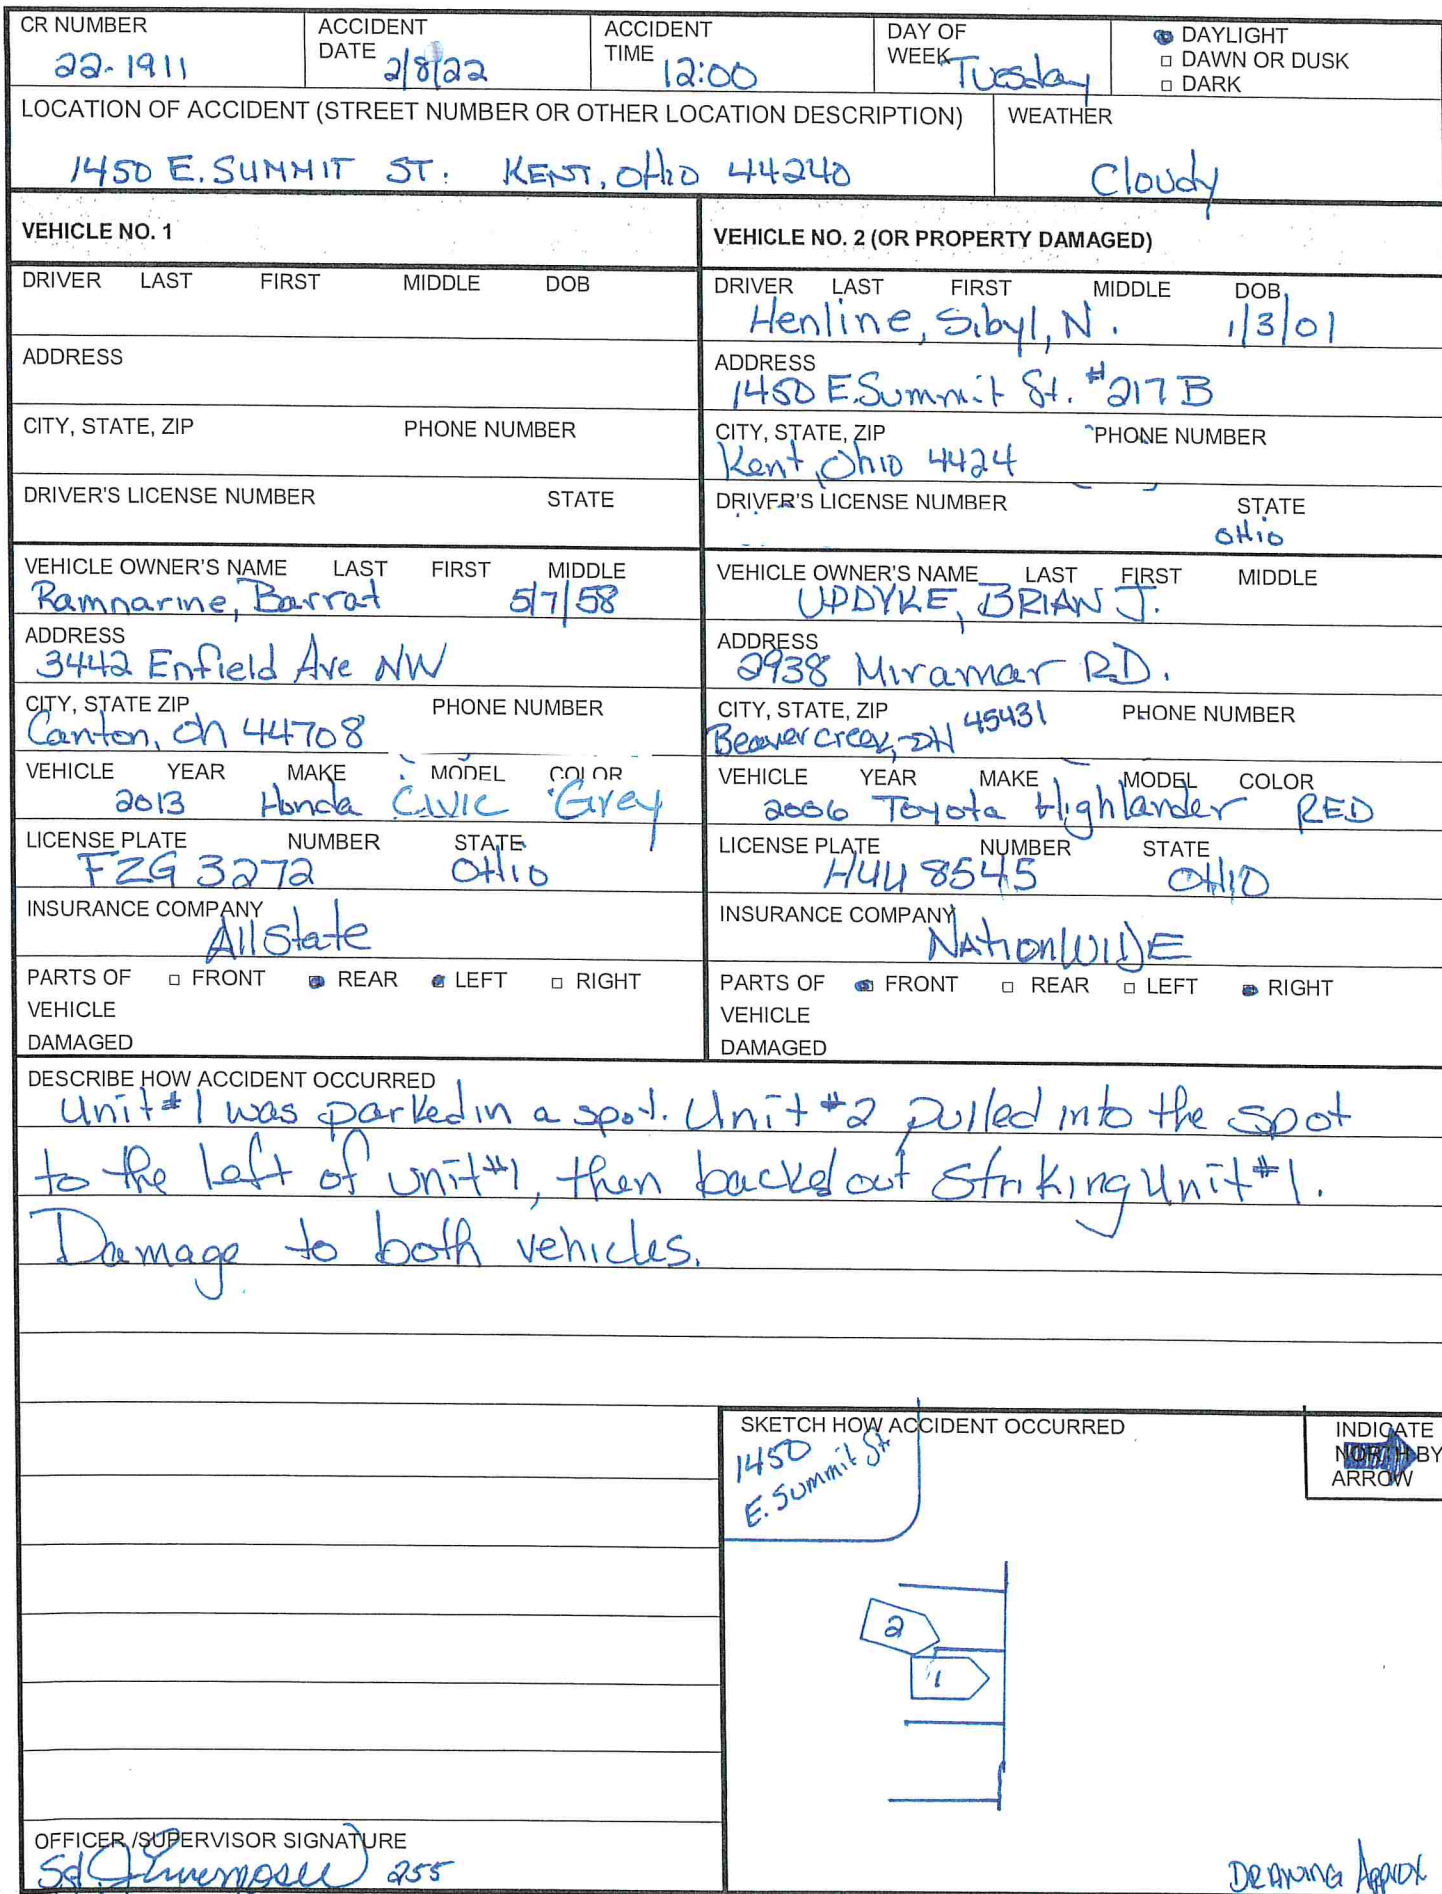 CR NUMBER ACCIDENT ACCIDENT DAY OF DAYLIGHT
DATE TIME WEEK DAWN OR DUSK
22-1911 2/8/22 12:00 Tuesday DARK
LOCATION OF ACCIDENT (STREET NUMBER OR OTHER LOCATION DESCRIPTION) WEATHER
1450 E. SUMMIT ST. KENT, OHIO 44240 Cloudy
VEHICLE NO. 1
DRIVER LAST FIRST MIDDLE DOB
ADDRESS
CITY, STATE, ZIP PHONE NUMBER
DRIVER'S LICENSE NUMBER STATE
VEHICLE OWNER'S NAME LAST FIRST MIDDLE
Ramnarine, Barrat 5/7/58
ADDRESS
3442 Enfield Ave NW
CITY, STATE ZIP PHONE NUMBER
Canton, Oh 44708
VEHICLE YEAR MAKE MODEL COLOR
2013 Honda Civic Grey
LICENSE PLATE NUMBER STATE
FZG 3272 OHio
INSURANCE COMPANY
AllState
PARTS OF FRONT REAR LEFT RIGHT
VEHICLE
DAMAGED
VEHICLE NO. 2 (OR PROPERTY DAMAGED)
DRIVER LAST FIRST MIDDLE DOB
Henline, Sibyl, N. 1/3/01
ADDRESS
1450 E.Summit St. #217 B
CITY, STATE, ZIP PHONE NUMBER
Kent, Ohio 4424
DRIVER'S LICENSE NUMBER STATE
OHio
VEHICLE OWNER'S NAME LAST FIRST MIDDLE
UPDYKE, BRIAN J.
ADDRESS
2938 Miramar RD.
CITY, STATE, ZIP PHONE NUMBER
Beavercreek, OH 45431
VEHICLE YEAR MAKE MODEL COLOR
2006 Toyota Highlander RED
LICENSE PLATE NUMBER STATE
HUU 8545 OHIO
INSURANCE COMPANY
NATIONWIDE
PARTS OF FRONT REAR LEFT RIGHT
VEHICLE
DAMAGED
DESCRIBE HOW ACCIDENT OCCURRED
Unit #1 was parked in a spot. Unit #2 pulled into the spot
to the left of unit #1, then backed out striking Unit #1.
Damage to both vehicles.
SKETCH HOW ACCIDENT OCCURRED
INDICATE
NORTH BY
ARROW
1450
E. Summit St
2
1
OFFICER /SUPERVISOR SIGNATURE
255
DRAWING Approx